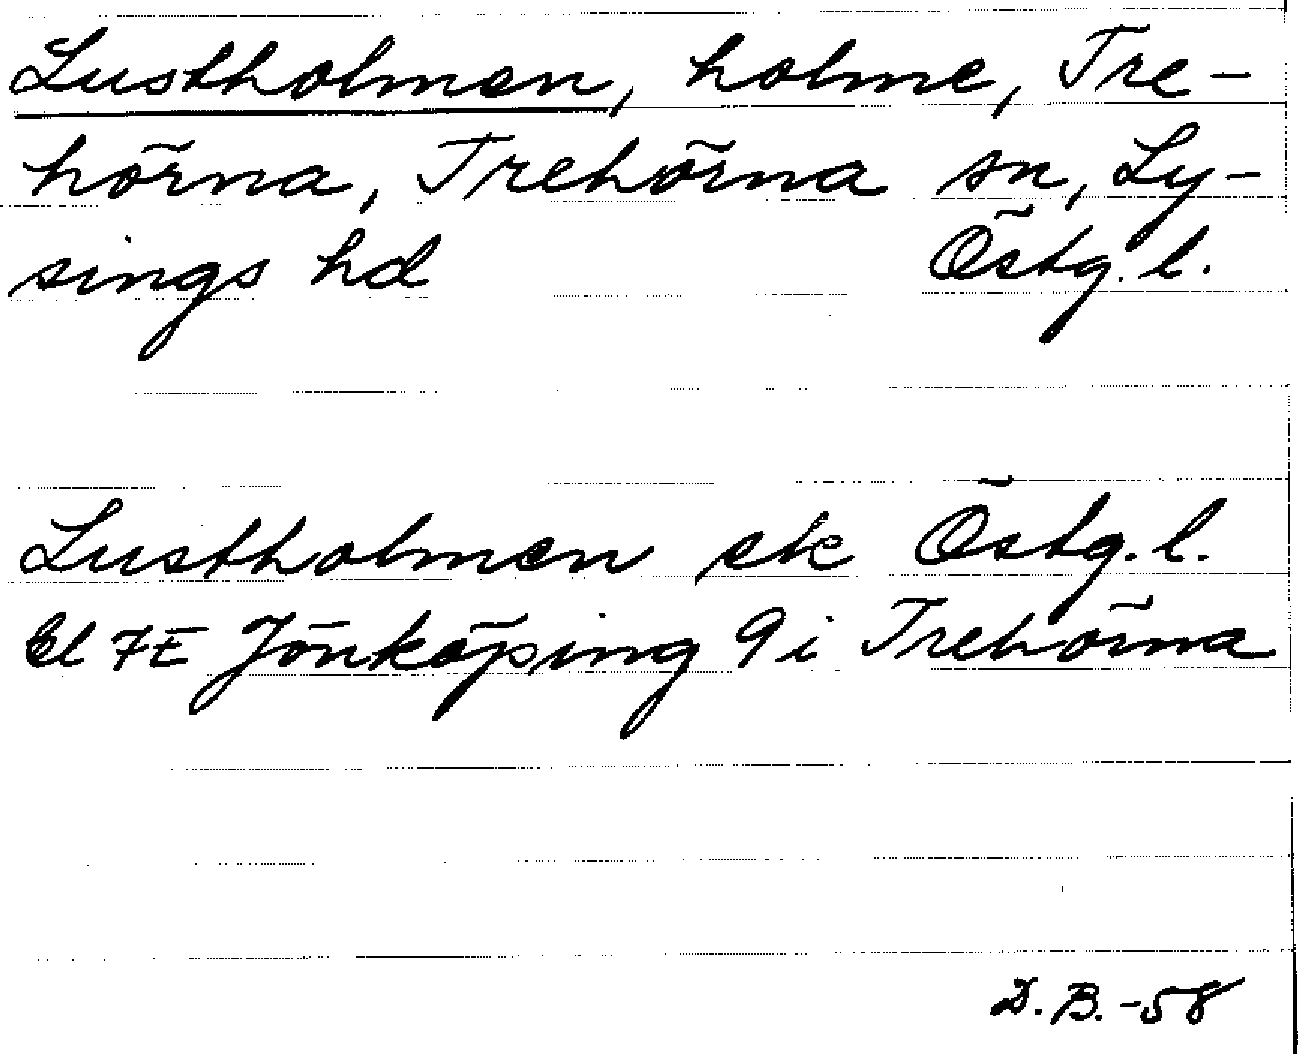 Lustholmen, holme, Tre-
hörna, Trehörna sn, Ly-
sings hd Östg. l.
Lustholmen ek Östg. l.
Bl 7E Jönköping 9i Trehörna
D.B. -58